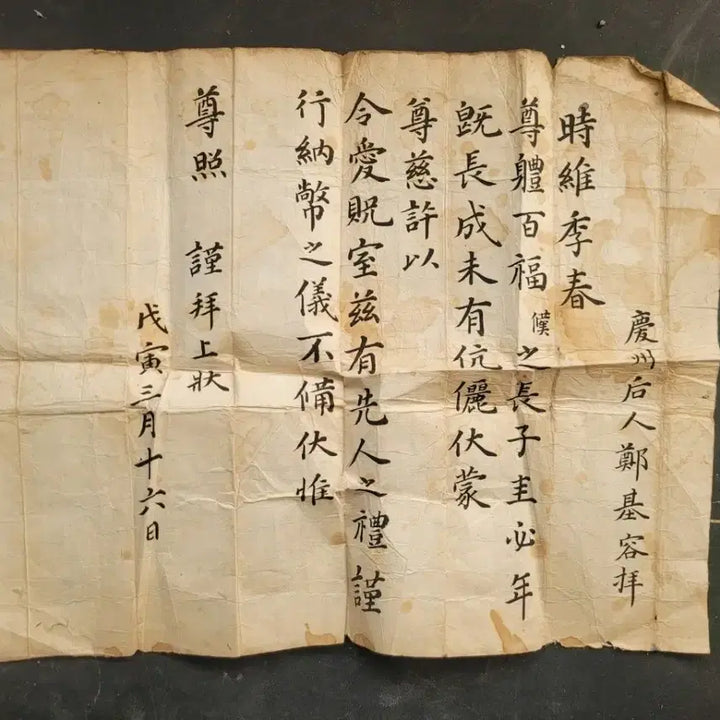 慶州后人鄭基容拜
時維季春
尊軆百福僕之長子圭必年
旣長成未有伉儷伏蒙
尊慈許以
令愛貺室玆有先人之禮謹
行納幣之儀不備伏惟
尊照 謹拜上狀
戊寅三月十六日